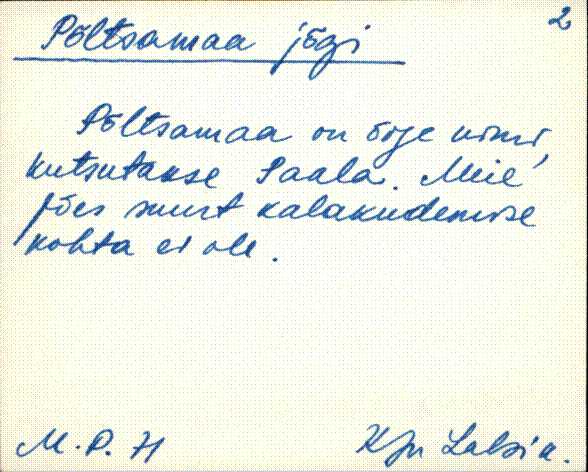 2
Põltsamaa jõgi
Põltsamaa on õige nimi,
kutsutakse Paala. Meie
jões suurt kalakudemise
kohta ei ole.
M. P. 71
KJn Lalsi k.